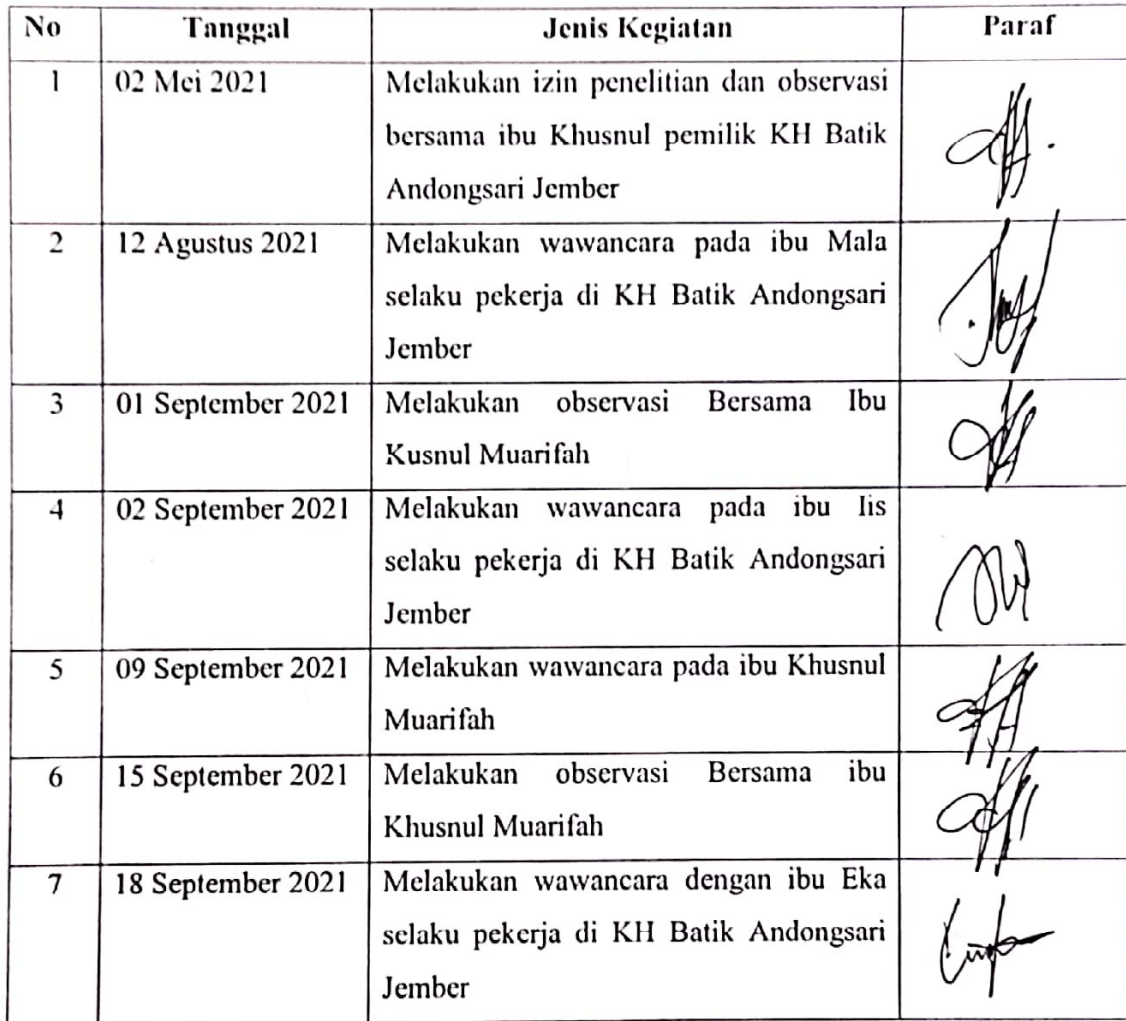 No Tanggal Jenis Kegiatan Paraf
1 02 Mei 2021 Melakukan izin penelitian dan observasi
bersama ibu Khusnul pemilik KH Batik
Andongsari Jember
2 12 Agustus 2021 Melakukan wawancara pada ibu Mala
selaku pekerja di KH Batik Andongsari
Jember
3 01 September 2021 Melakukan observasi Bersama Ibu
Kusnul Muarifah
4 02 September 2021 Melakukan wawancara pada ibu Iis
selaku pekerja di KH Batik Andongsari
Jember
5 09 September 2021 Melakukan wawancara pada ibu Khusnul
Muarifah
6 15 September 2021 Melakukan observasi Bersama ibu
Khusnul Muarifah
7 18 September 2021 Melakukan wawancara dengan ibu Eka
selaku pekerja di KH Batik Andongsari
Jember